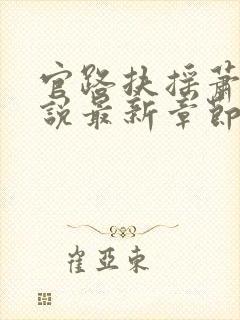 官路扶摇萧
说最新章节
崔亚东